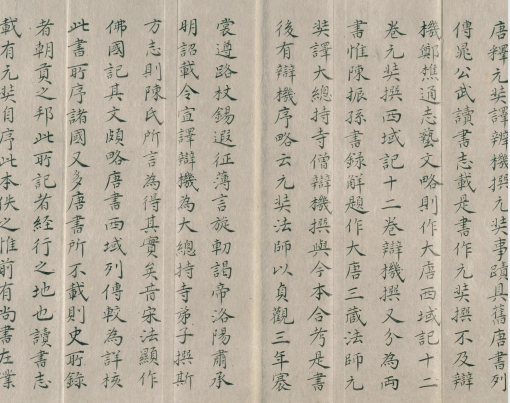 唐釋元奘譯辯機撰元奘事蹟具舊唐書列
傳晁公武讀書志載是書作元奘撰不及辯
機鄭樵通志藝文略則作大唐西域記十二
卷元奘撰西域記十二卷辯機撰又分為兩
書惟陳振孫書録解題作大唐三藏法師元
奘譯大總持寺僧辯機撰與今本合考是書
後有辯機序略云元奘法師以貞觀三年褰
裳遵路杖錫遐征薄言旋軔謁帝洛陽肅承
明詔載令宣譯辯機為大總持寺弟子撰斯
方志則陳氏所言為得其實矣昔宋法顯作
佛國記其文頗略唐書西域列傳較為詳核
此書所序諸國又多唐書所不載則史所録
者朝貢之邦此所記者經行之地也讀書志
載有元奘自序此本佚之惟前有尚書左業